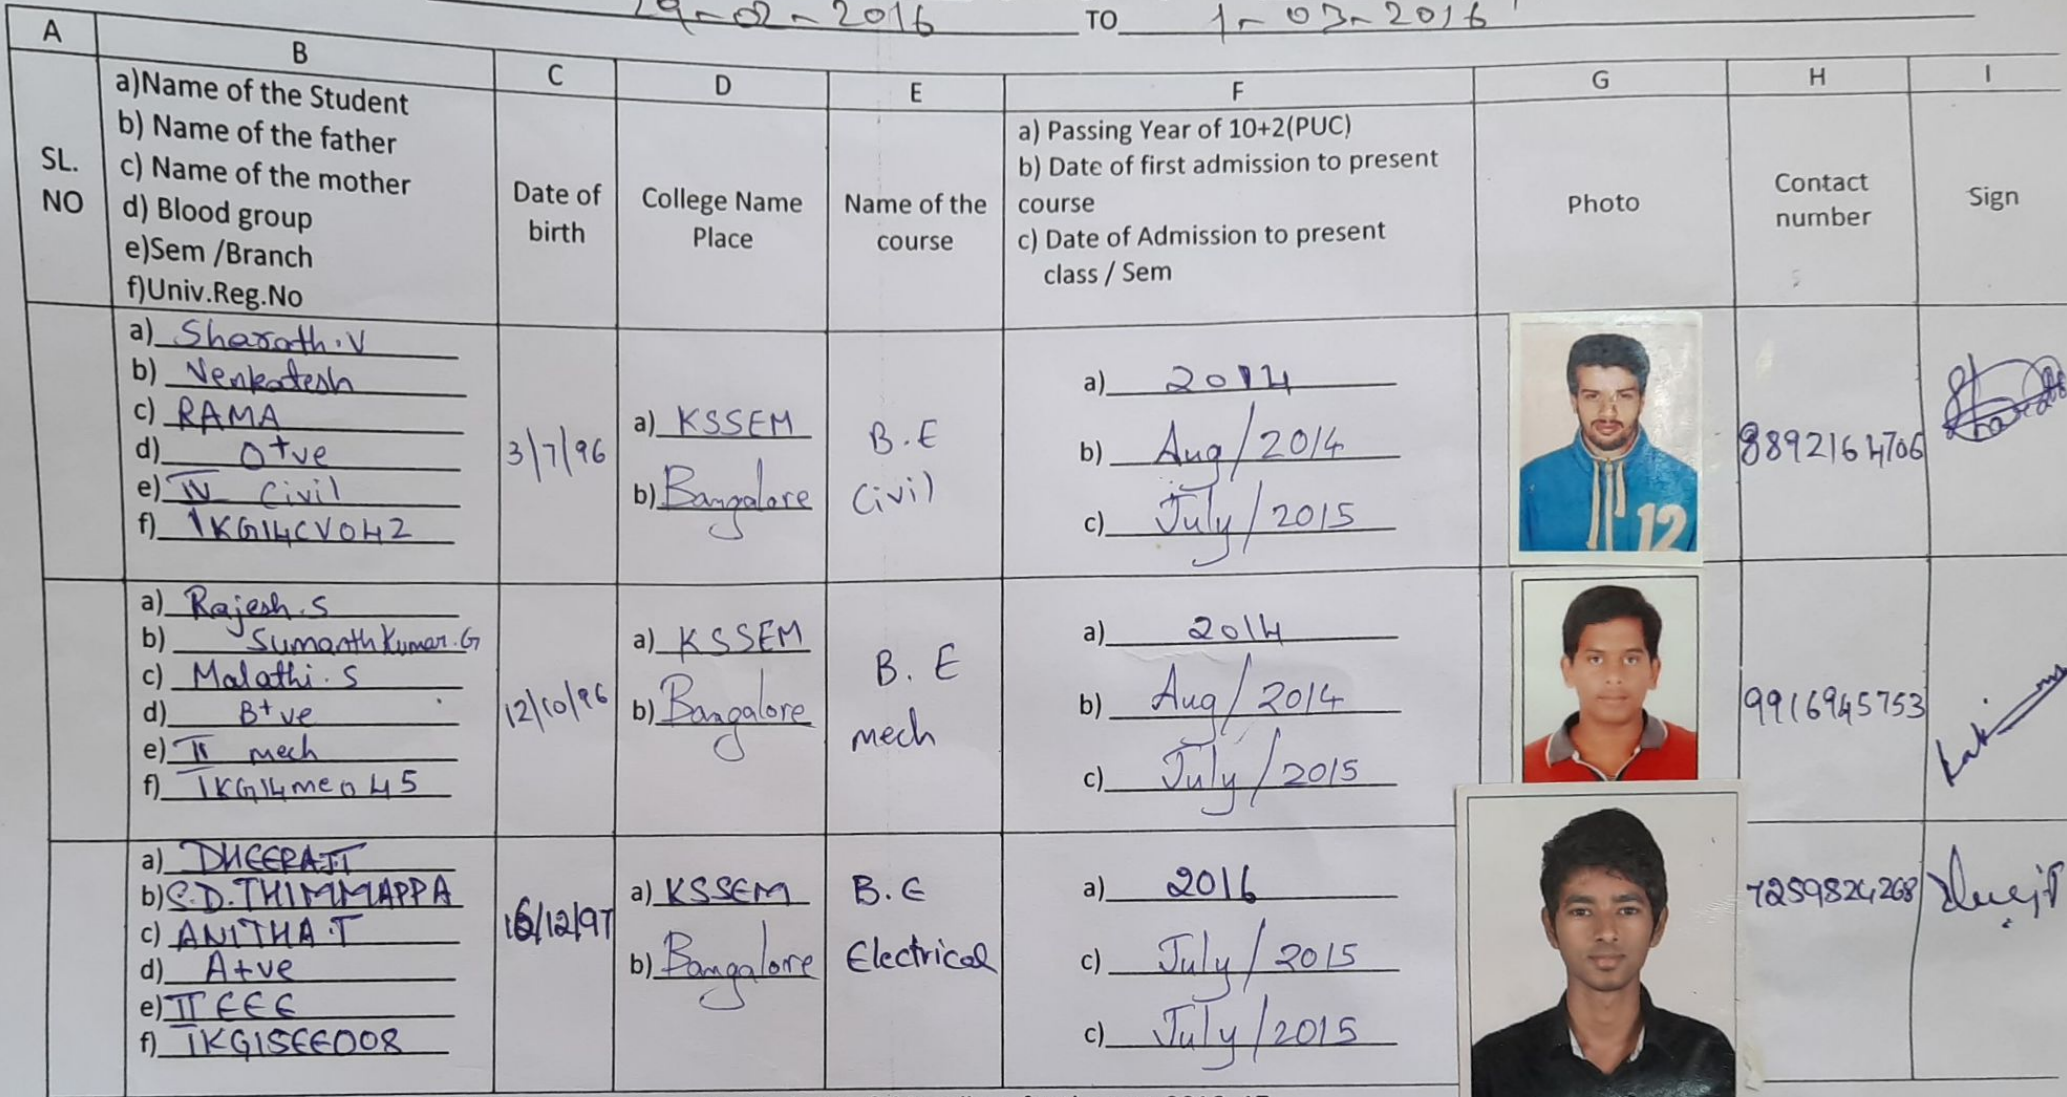 29-02-2016 TO 1-03-2016
A B C D E F G H I
SL. NO
a)Name of the Student
b) Name of the father
c) Name of the mother
d) Blood group
e)Sem /Branch
f)Univ.Reg.No
Date of birth
College Name Place
Name of the course
a) Passing Year of 10+2(PUC)
b) Date of first admission to present
course
c) Date of Admission to present
class / Sem
Photo
Contact number
Sign
a) Sharath.V
b) Venkatesh
c) RAMA
d) O+ve
e) IV Civil
f) 1KG14CV042
3/7/96
a) KSSEM
b) Bangalore
B.E
Civil
a) 2014
b) Aug/2014
c) July/2015
12
8892164706
a) Rajesh.S
b) Sumanth Kumar.G
c) Malathi.S
d) B+ve
e) II mech
f) 1KG14me045
12/10/96
a) KSSEM
b) Bangalore
B.E
mech
a) 2014
b) Aug/2014
c) July/2015
9916945753
a) DHEERAJ.T
b) S.D.THIMMAPPA
c) ANITHA.T
d) A+ve
e) II EEE
f) 1KG15EE008
16/12/97
a) KSSEM
b) Bangalore
B.E
Electrical
a) 2016
c) July/2015
c) July/2015
7259824268